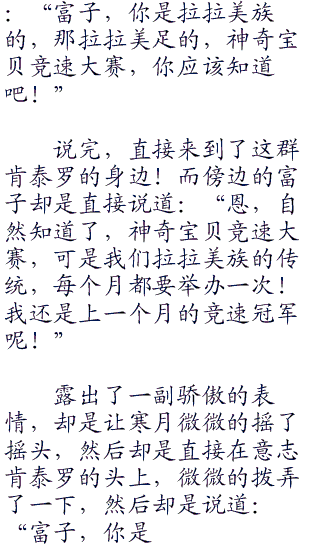 ：“富子，你是拉拉美族
的，那拉拉美足的，神奇宝
贝竞速大赛，你应该知道
吧！”
说完，直接来到了这群
肯泰罗的身边！而傍边的富
子却是直接说道：“恩，自
然知道了，神奇宝贝竞速大
赛，可是我们拉拉美族的传
统，每个月都要举办一次！
我还是上一个月的竞速冠军
呢！”
露出了一副骄傲的表
情，却是让寒月微微的摇了
摇头，然后却是直接在意志
肯泰罗的头上，微微的拨弄
了一下，然后却是说道：
“富子，你是